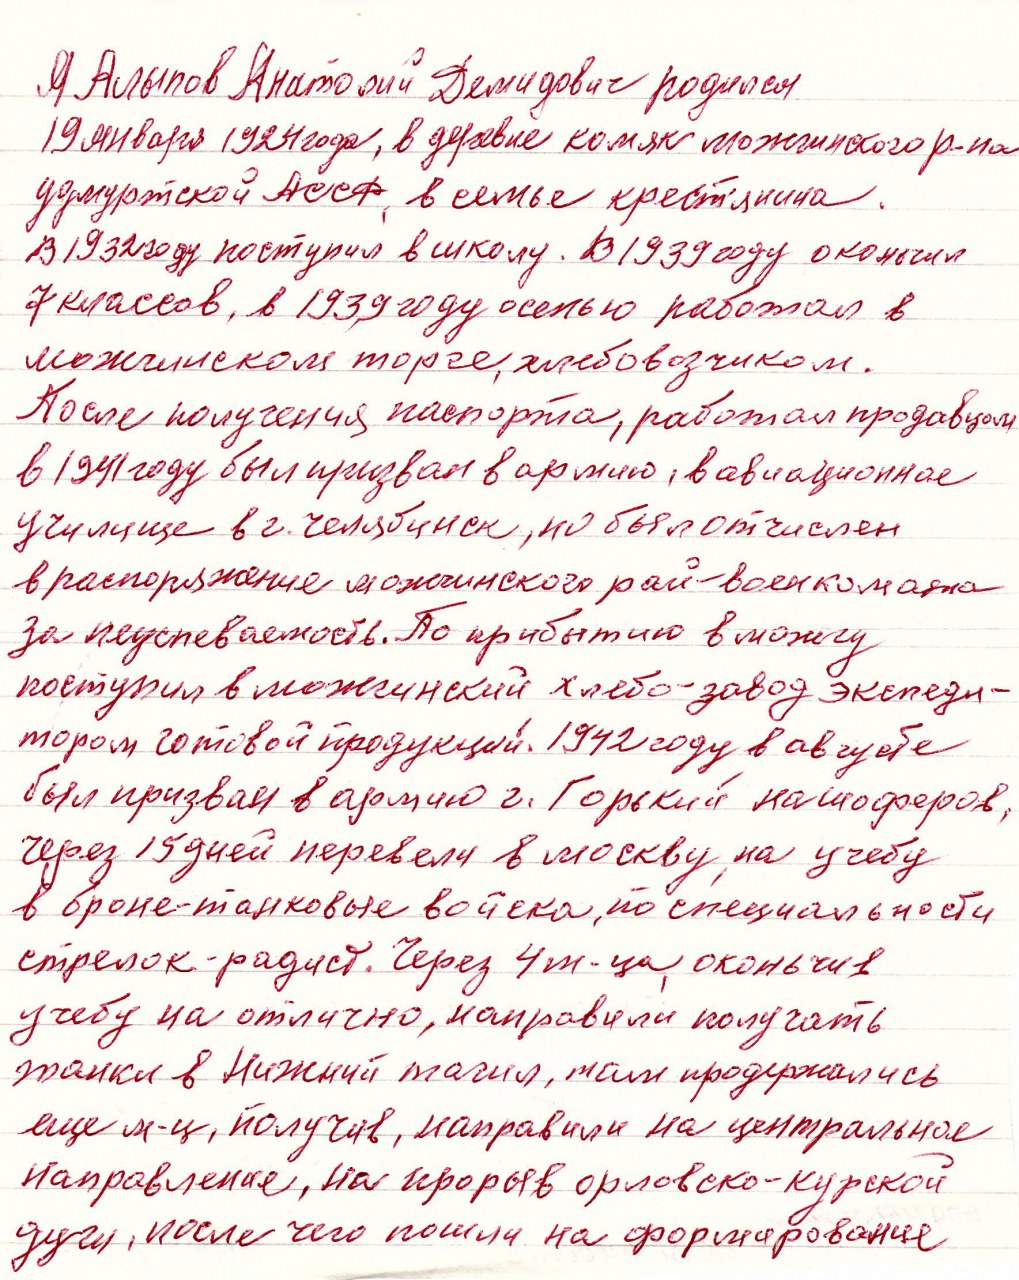 Я Алыпов Анатолий Демидович родился
19 января 1924 года, в деревне комяк можгинского р-на
удмуртской АССР, в семье крестянина.
В 1932 году поступил в школу. В 1939 году оконьчил
7 классов, в 1939 году осенью работал в
можгинском торге, хлебовозчиком.
После получения паспорта, работал продавцом
в 1941 году был призван в армию, в авиационное
училище в г. челябинск, но был отчислен
в распоряжение можгинского рай-военкомата
за неуспеваемость. По прибытию в можгу
поступил в можгинский хлебо-завод экспеди-
тором готовой продукций. 1942 году в августе
был призван в армию г. Горький на шоферов,
через 15 дней перевели в москву, на учебу
в броне-танковые войска, по специальности
стрелок-радист. Через 4 м-ца, оконьчив
учебу на отлично, направили получать
танки в Нижний тагил, там продержались
еще м-ц, получив, направили на центральное
направление, на прорыв орловско-курской
дуги, после чего пошли на формирование